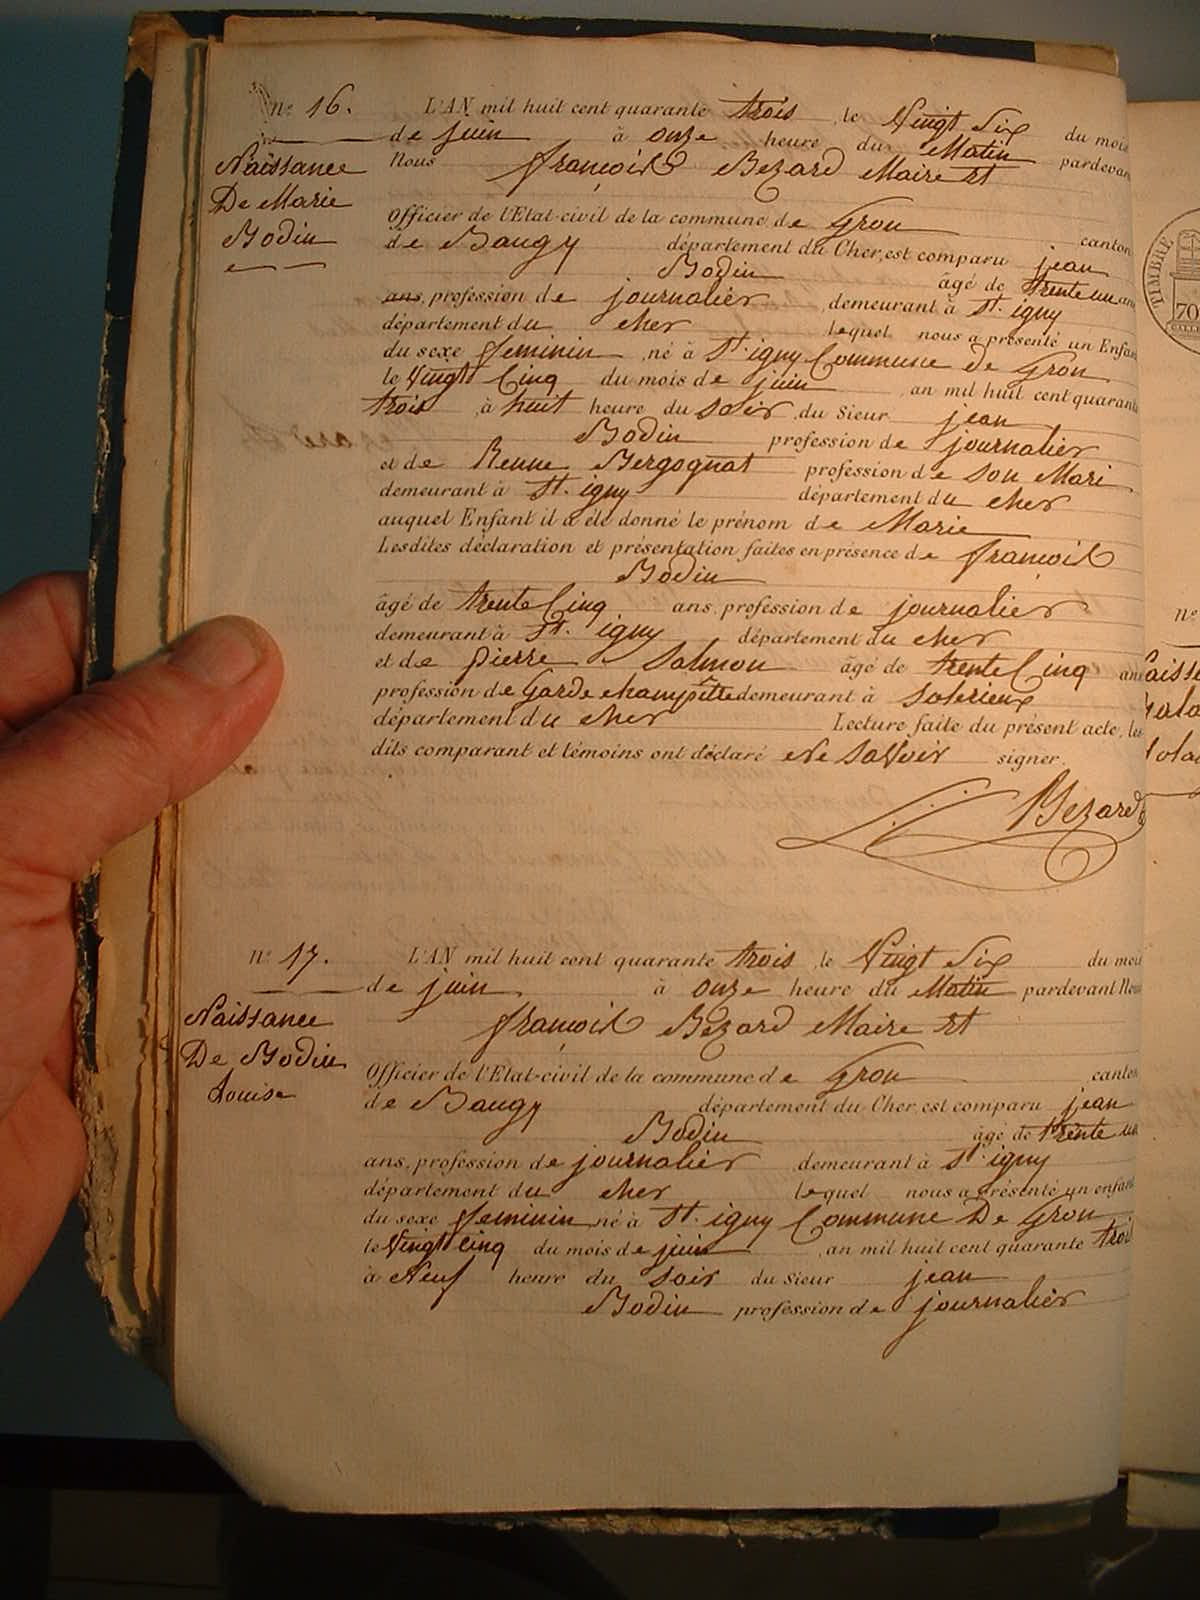 n.º 16.
Naissance
De Marie
Bodin
L'AN mil huit cent quarante trois, le Vingt Six du mois
de juin à onze heure du Matin pardevan
Nous françois Bezard Maire et
Officier de l'Etat-civil de la commune de Gron canton
de Baugy département du Cher, est comparu jean
Bodin âgé de trente un ans
ans, profession de journalier demeurant à St. igny
département du cher lequel nous a présenté un Enfan
du sexe feminin né à St. igny Commune de Gron
le Vingt Cinq du mois de juin, an mil huit cent quarante
trois, à huit heure du soir, du Sieur jean
Bodin profession de journalier
et de Renne Bergognat profession de son Mari
demeurant à St. igny département du cher
auquel Enfant il a été donné le prénom de Marie
Lesdites déclaration et présentation faites en présence de françois
Bodin
âgé de trente Cinq ans, profession de journalier
demeurant à St. igny département du cher
et de pierre Salmon âgé de trente Cinq ans
profession de Garde champêtre demeurant à Solerieux
département du cher Lecture faite du présent acte, les
dits comparant et témoins ont déclaré Ne saVoir signer.
Bezard
n.º 17.
Naissance
De Bodin
Louise
L'AN mil huit cent quarante trois, le Vingt Six du moi
de juin à onze heure du Matin pardevant Nous
françois Bezard Maire et
Officier de l'Etat-civil de la commune de Gron canton
de Baugy département du Cher, est comparu jean
Bodin âgé de trente un
ans, profession de journalier demeurant à St. igny
département du cher lequel nous a présenté un enfant
du sexe feminin né à St. igny Commune De Gron
le Vingt cinq du mois de juin, an mil huit cent quarante trois
à Neuf heure du soir du sieur jean
Bodin profession de journalier
TIMBRE
70
n.º